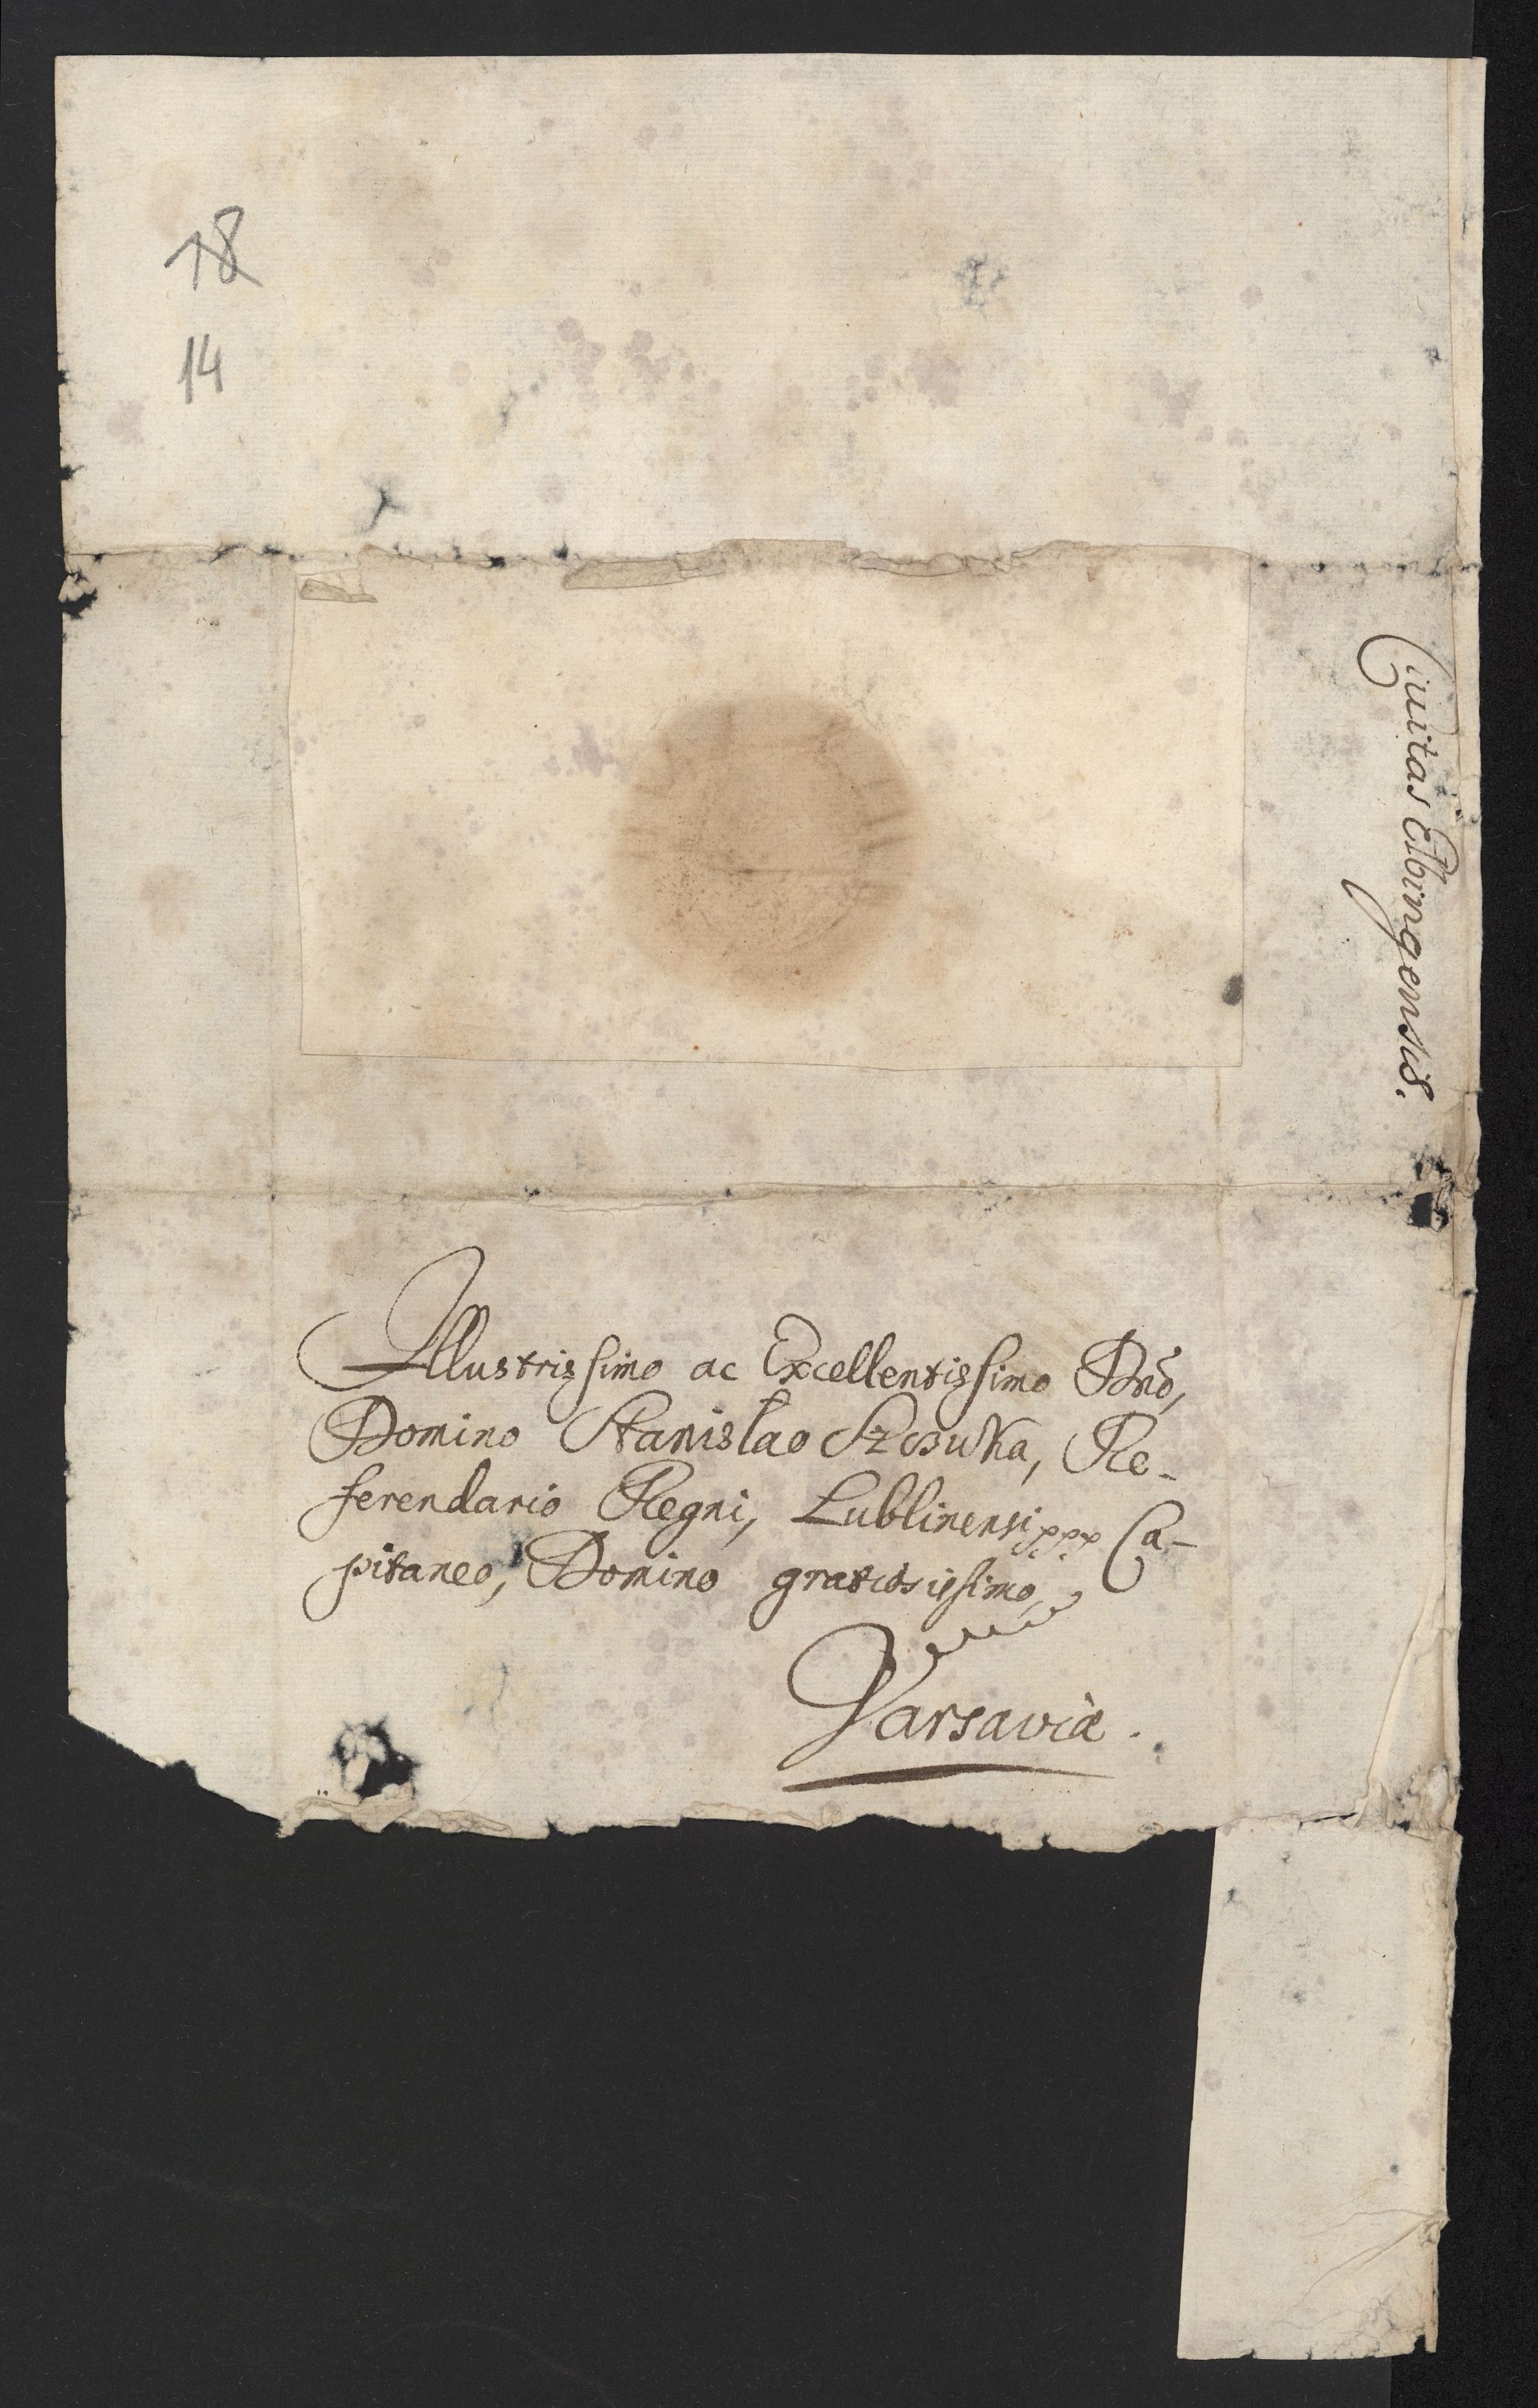 18
14
Civitas Elbingensis.
Illustrissimo ac Excellentissimo Dnō,
Domino Stanislao Szczuka, Re-
ferendario Regni, Lublinensi ppp Ca-
pitaneo, Domino gratiosissimo,
Varsaviæ.